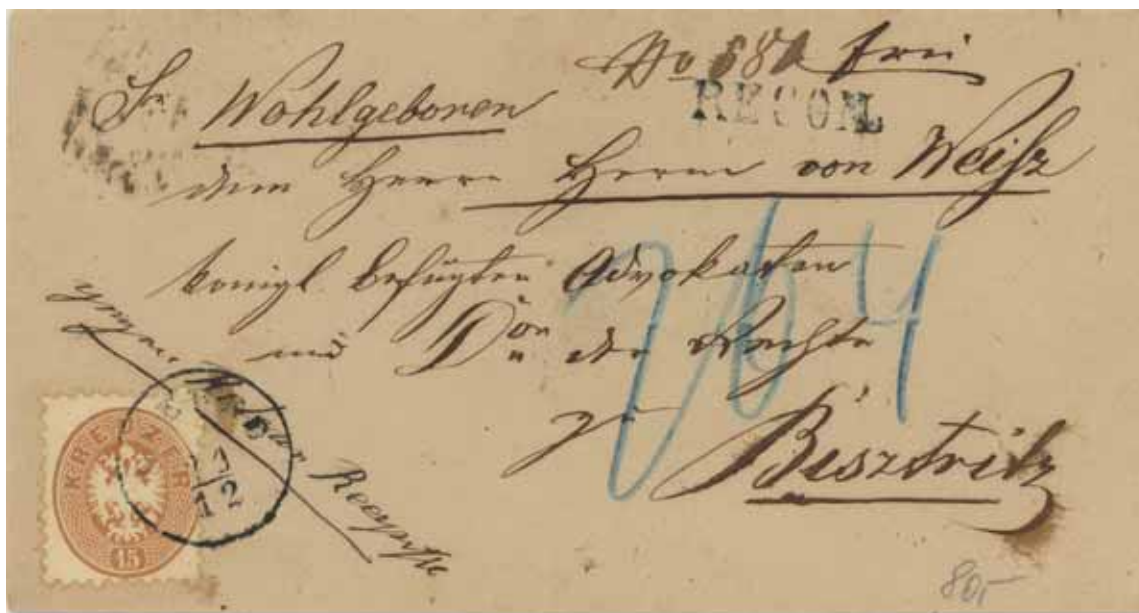 No 680 frei
RECOM.
Sr Wohlgeboren
dem Herrn Herrn von Weiſz
königl. befugten Advokaten
und Dor der Rechte
zu
Bisztritz
gegen Retour Recepisse
KREUZER
15
1/12
264
80,-